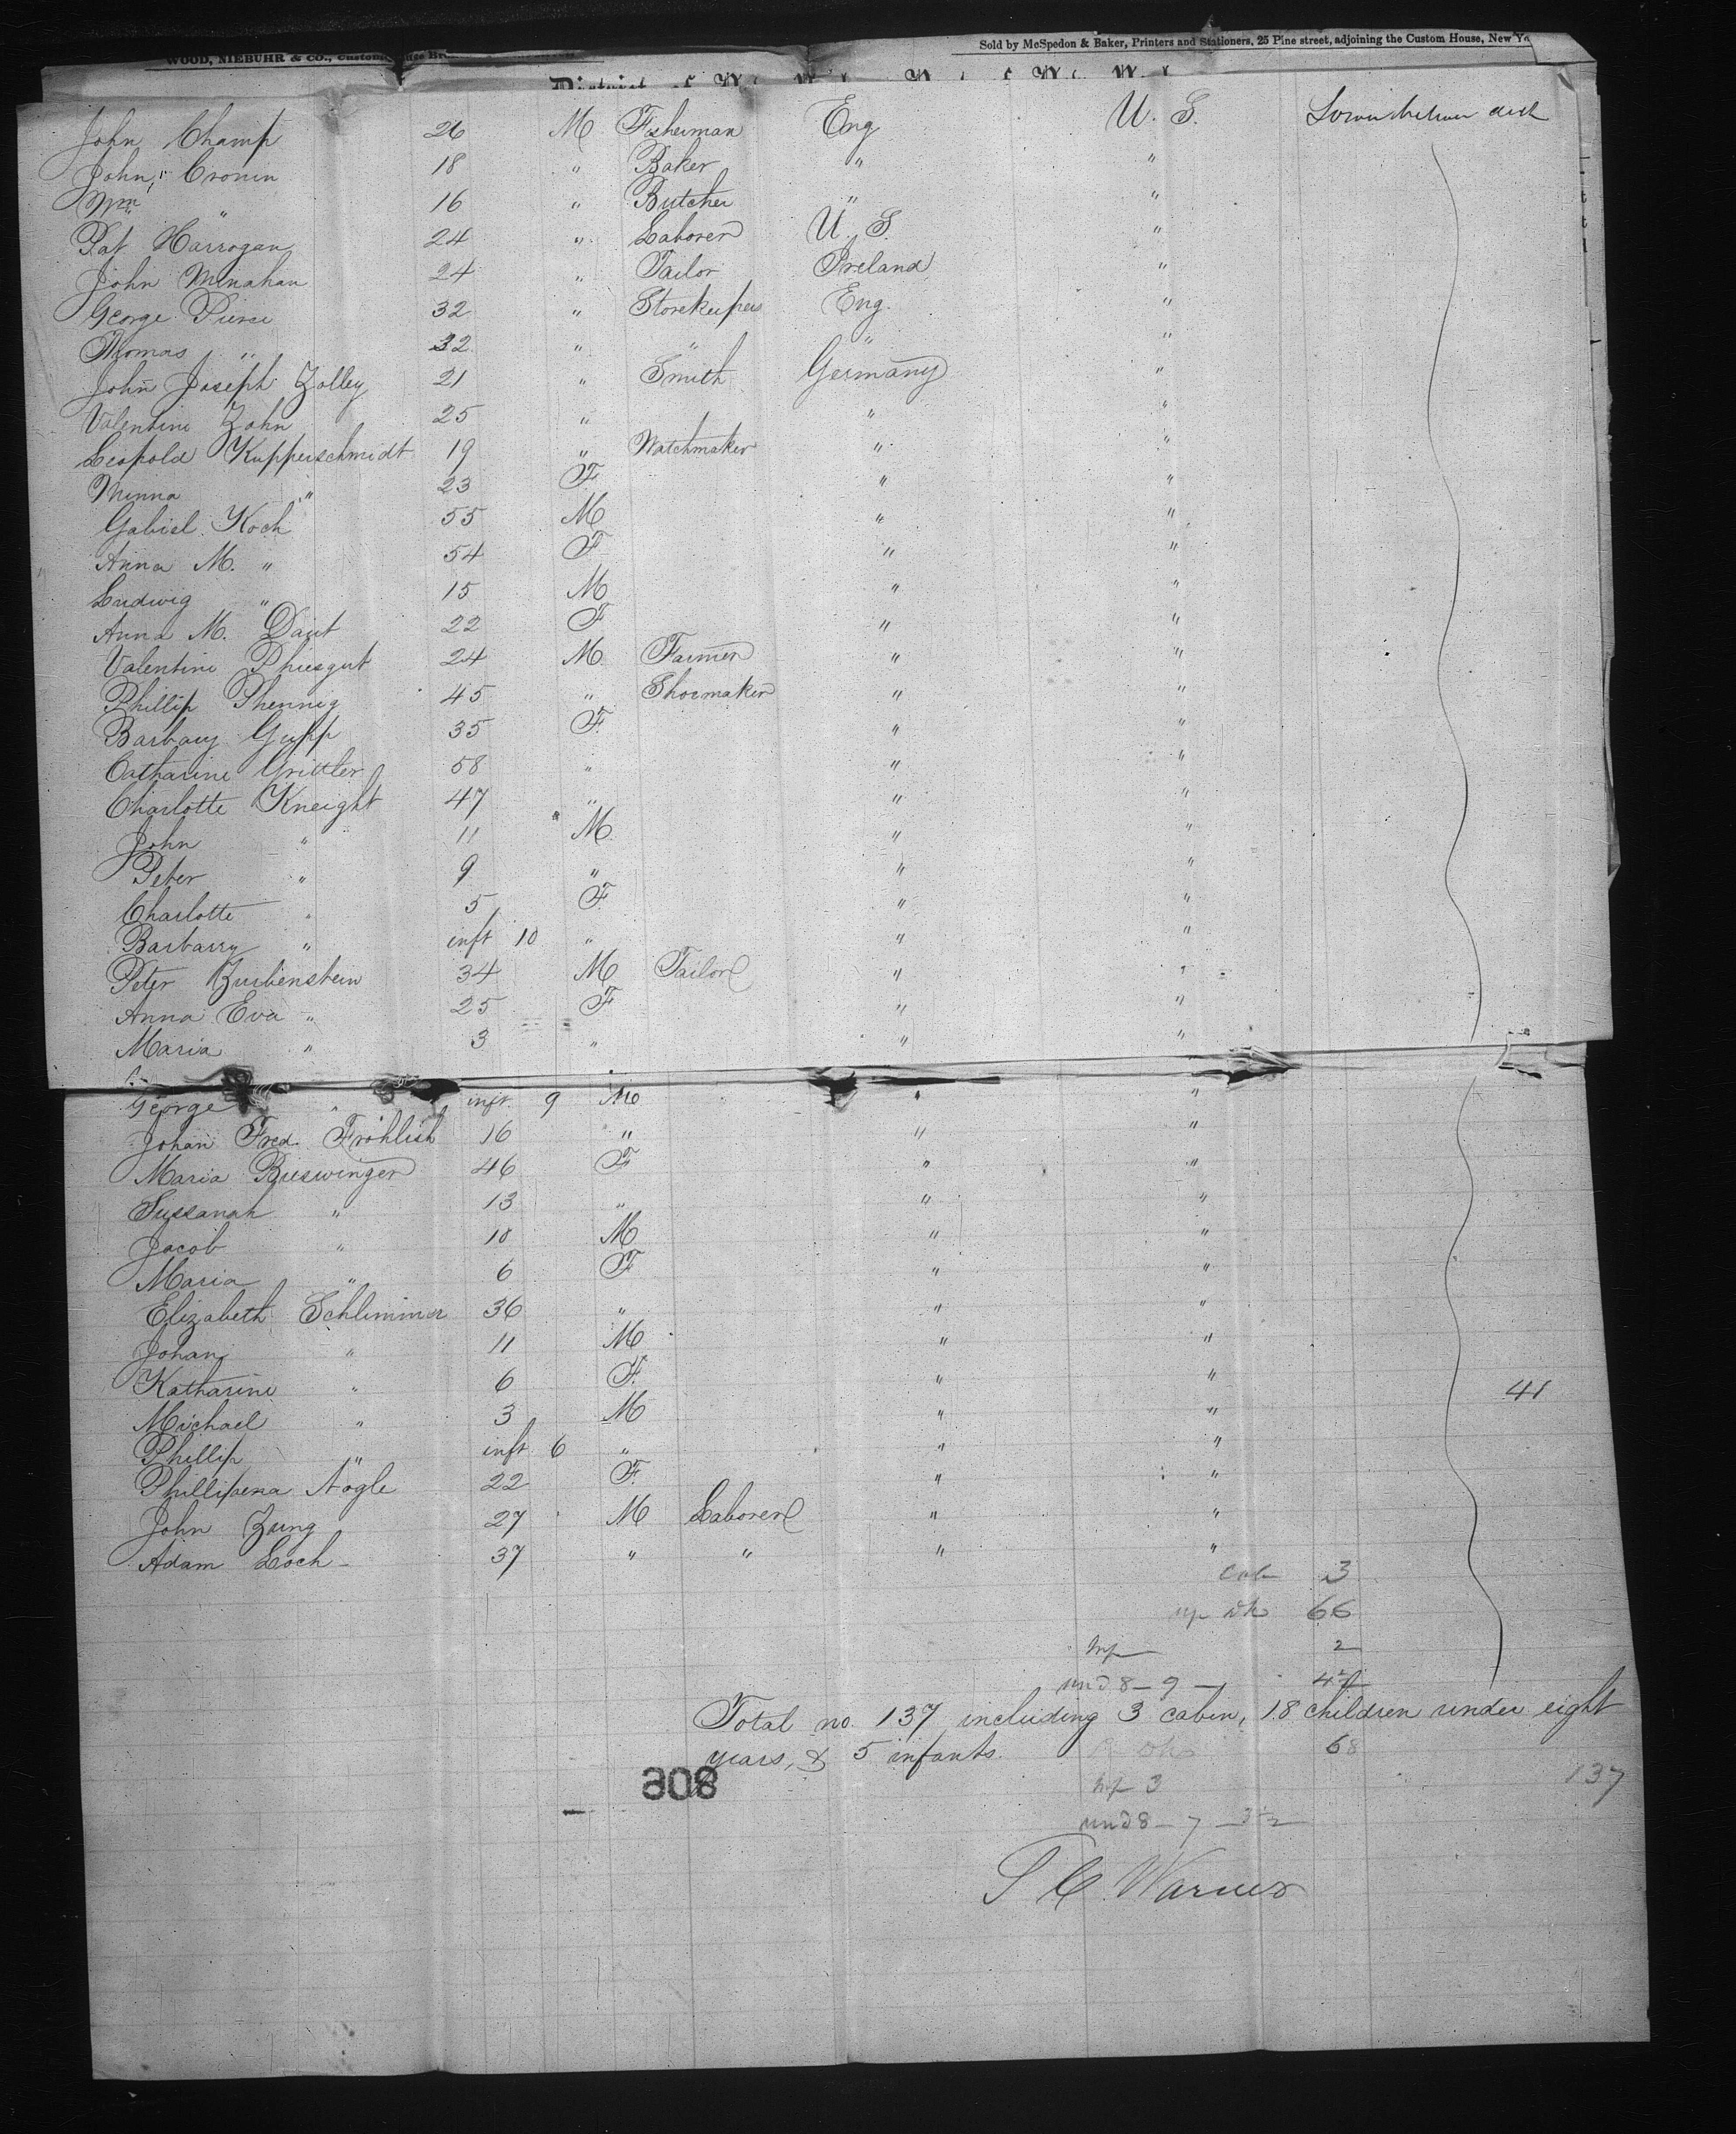 WOOD, NIEBUHR & CO., Custom
Sold by McSpedon & Baker, Printers and Stationers, 25 Pine street, adjoining the Custom House, New Yo
District of
John Champ 26 M Fisherman Eng U. S. Lower between deck
John Cronin 18 " Baker " "
Wm " 16 " Butcher " "
Pat Harrogan 24 " Laborer U. S. "
John Minahan 24 " Tailor Ireland "
George Pierce 32 " Storekeepers Eng. "
Thomas " 32 " " " "
John Joseph Zolley 21 " Smith Germany "
Valentine Zahn 25 " " "
Leopold Kupperschmidt 19 " Watchmaker " "
Minna " 23 F " "
Gabiel Koch 55 M " "
Anna M. " 54 F " "
Ludwig " 15 M " "
Anna M. Daut 22 F " "
Valentine Phiesgut 24 M Farmer " "
Phillip Phennig 45 " Shoemaker " "
Barbary Gupp 35 F " "
Catharine Grittler 58 " " "
Charlotte Kneight 47 " " "
John " 11 M " "
Peter " 9 " " "
Charlotte " 5 F " "
Barbarry " inft 10 " " "
Peter Zurbenstein 34 M Tailor " "
Anna Eva " 25 F " "
Maria " 3 " " "
George " inft. 9 M " "
Johan Fred. Frohlish 16 " " "
Maria Bieswinger 46 F " "
Sussanah " 13 " " "
Jacob " 10 M " "
Maria " 6 F " "
Elizabeth Schlimmer 36 " " "
Johan " 11 M " "
Katharine " 6 F. " " 41
Michael " 3 M " "
Phillip " inft 6 " " "
Phillipena Nogle 22 F. " "
John Zung 27 M Laborer " "
Adam Loch 37 " " " "
Cab 3
up dk 66
Inf 2
und 8 - 9 - 4½
Total no. 137 including 3 cabin, 18 children under eight
years, & 5 infants. dk 68
308
137
Inf 3
und 8 - 7 - 3½
Warner